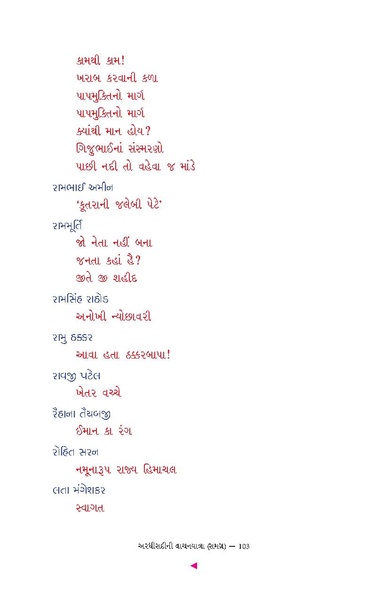 કામથી કામ!
ખરાબ કરવાની કળા
પાપમુક્તિનો માર્ગ
પાપમુક્તિનો માર્ગ
ક્યાંથી માન હોય?
ગિજુભાઈનાં સંસ્મરણો
પાછી નદી તો વહેવા જ માંડે
રામભાઈ અમીન
‘કૂતરાની જલેબી પેટે’
રામમૂર્તિ
જો નેતા નહીં બના
જનતા કહાં હૈ?
જીતે જી શહીદ
રામસિંહ રાઠોડ
અનોખી ન્યોછાવરી
રામુ ઠક્કર
આવા હતા ઠક્કરબાપા!
રાવજી પટેલ
ખેતર વચ્ચે
રૈહાના તૈયબજી
ઈમાન કા રંગ
રોહિત સરન
નમૂનારૂપ રાજ્ય હિમાચલ
લતા મંગેશકર
સ્વાગત
અરધીસદીની વાચનયાત્રા (સમગ્ર) — 103